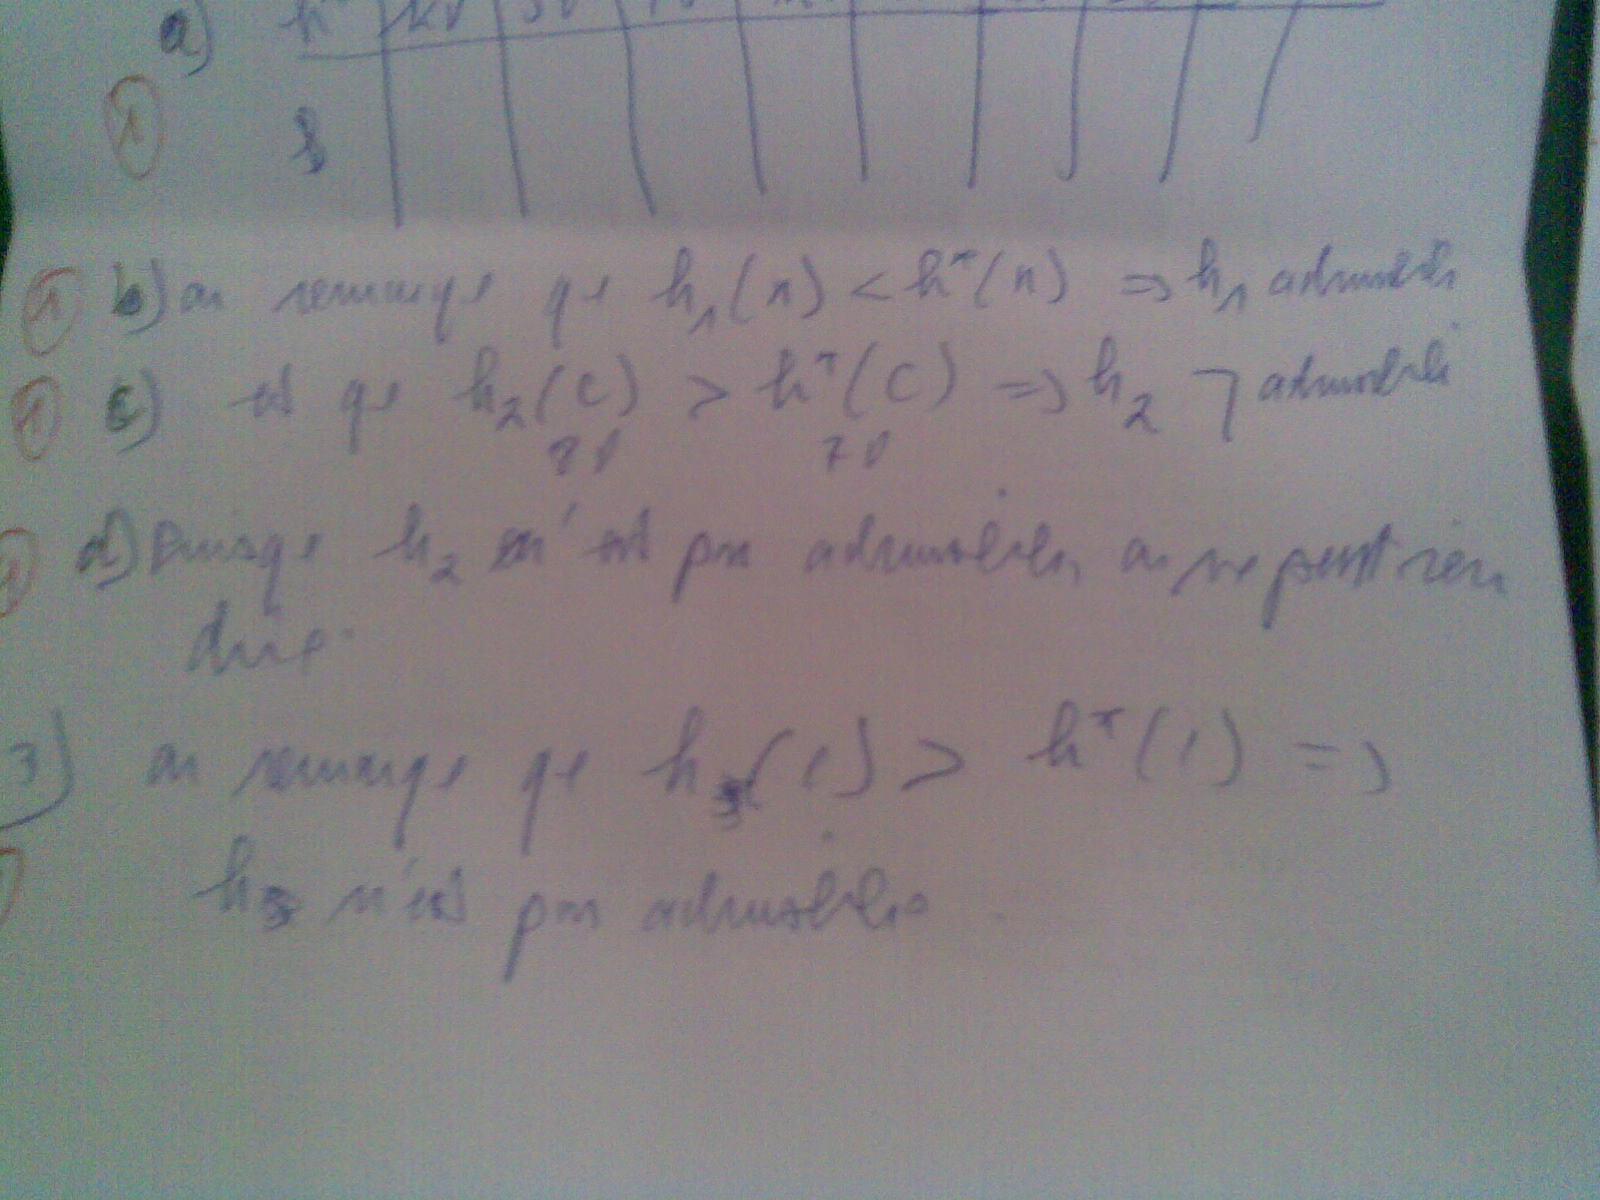 a) h*
①
① b) on remarque que h₁(n) < h*(n) => h₁ admissible
① c) est que h₂(C) > h*(C) => h₂ ¬ admissible
80 70
d) Puisque h₂ n'est pas admissible, on ne peut rien
dire.
3) on remarque que h₃(1) > h*(1) =>
h₃ n'est pas admissible.